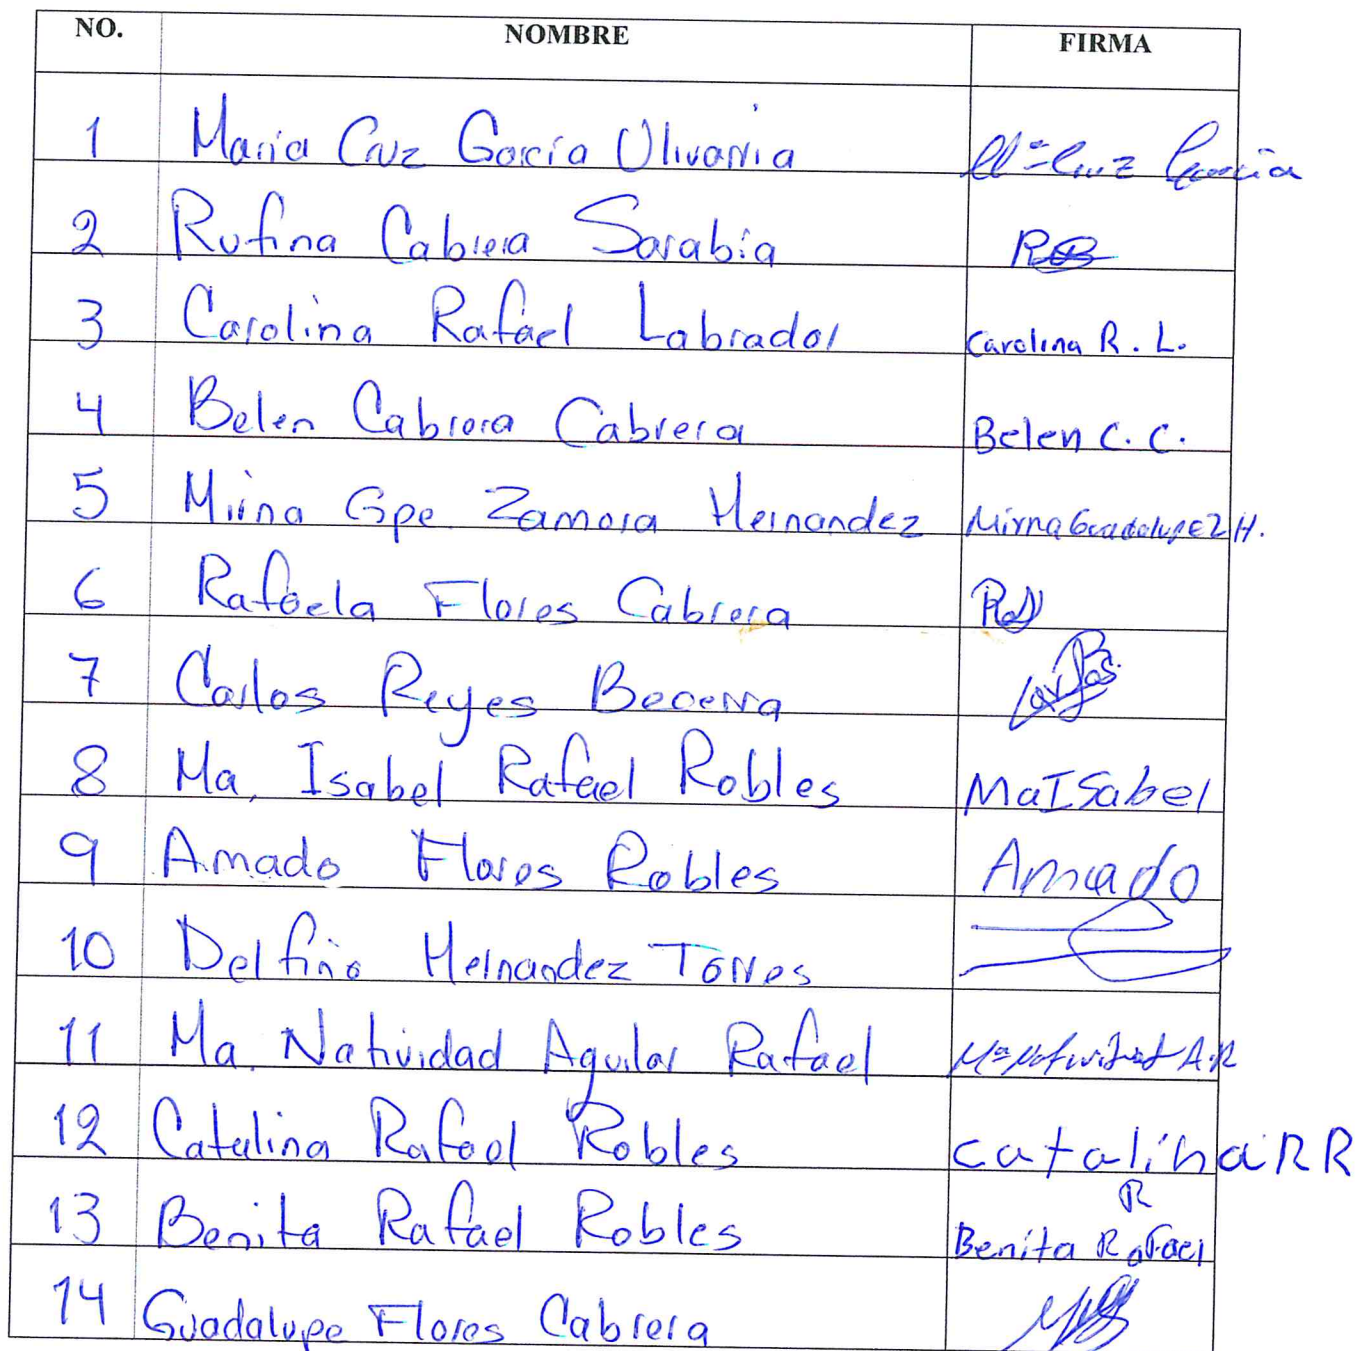 NO. NOMBRE FIRMA
1 Maria Cruz García Olivarria Mª Cruz García
2 Rufina Cabrera Sarabia
3 Carolina Rafael Labrador Carolina R. L.
4 Belen Cabrera Cabrera Belen C. C.
5 Mirna Gpe. Zamora Hernandez Mirna Guadalupe Z H.
6 Rafaela Flores Cabrera
7 Carlos Reyes Becerra
8 Ma. Isabel Rafael Robles Ma ISabel
9 Amado Flores Robles Amado
10 Delfino Hernandez Torres
11 Ma. Natividad Aguilar Rafael Mª Natividad A.R
12 Catalina Rafael Robles catalina R R
13 Benita Rafael Robles Benita Rafael R
14 Guadalupe Flores Cabrera